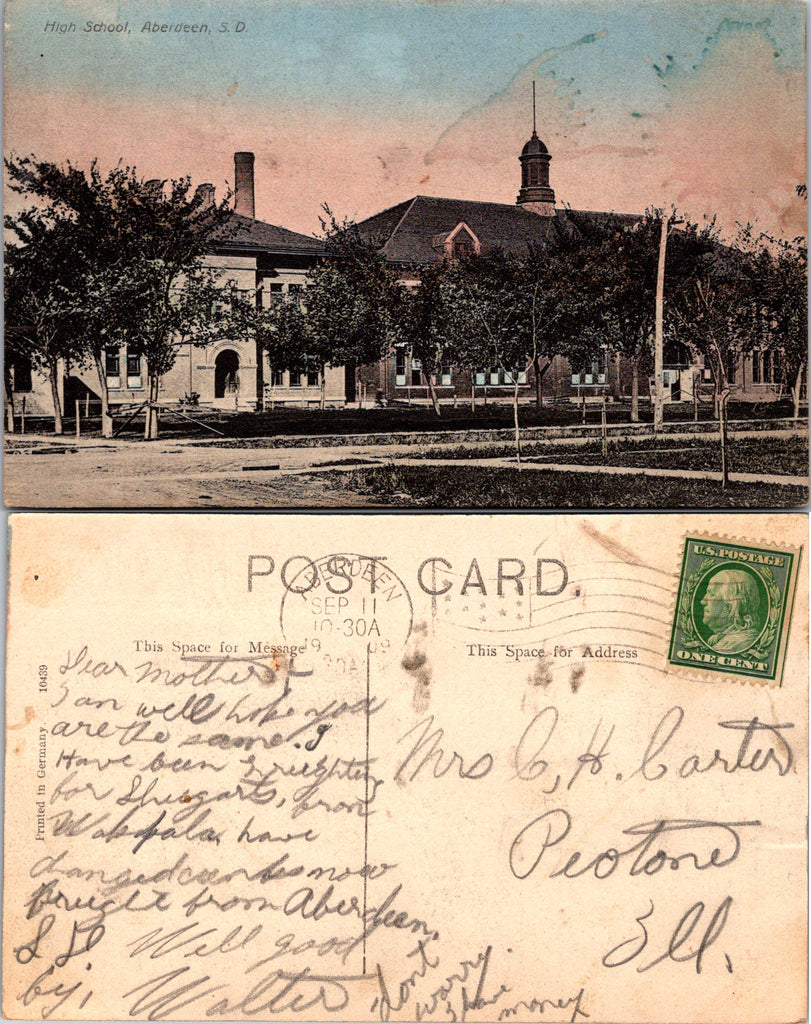 High School, Aberdeen, S. D.
POST CARD.
ABERDEEN
SEP 11
10-30A
1909
This Space for Message
This Space for Address
U.S. POSTAGE
ONE CENT
Printed in Germany. 10439
Dear Mother-
I am well hope you
are the same. I
Have been Freighting
for from
Wakpala, have
changed now
freight from Aberdeen,
S D. Well good
by, Walter
dont
worry.
I have
money
Mrs C, H. Carter
Peotone
Ill.